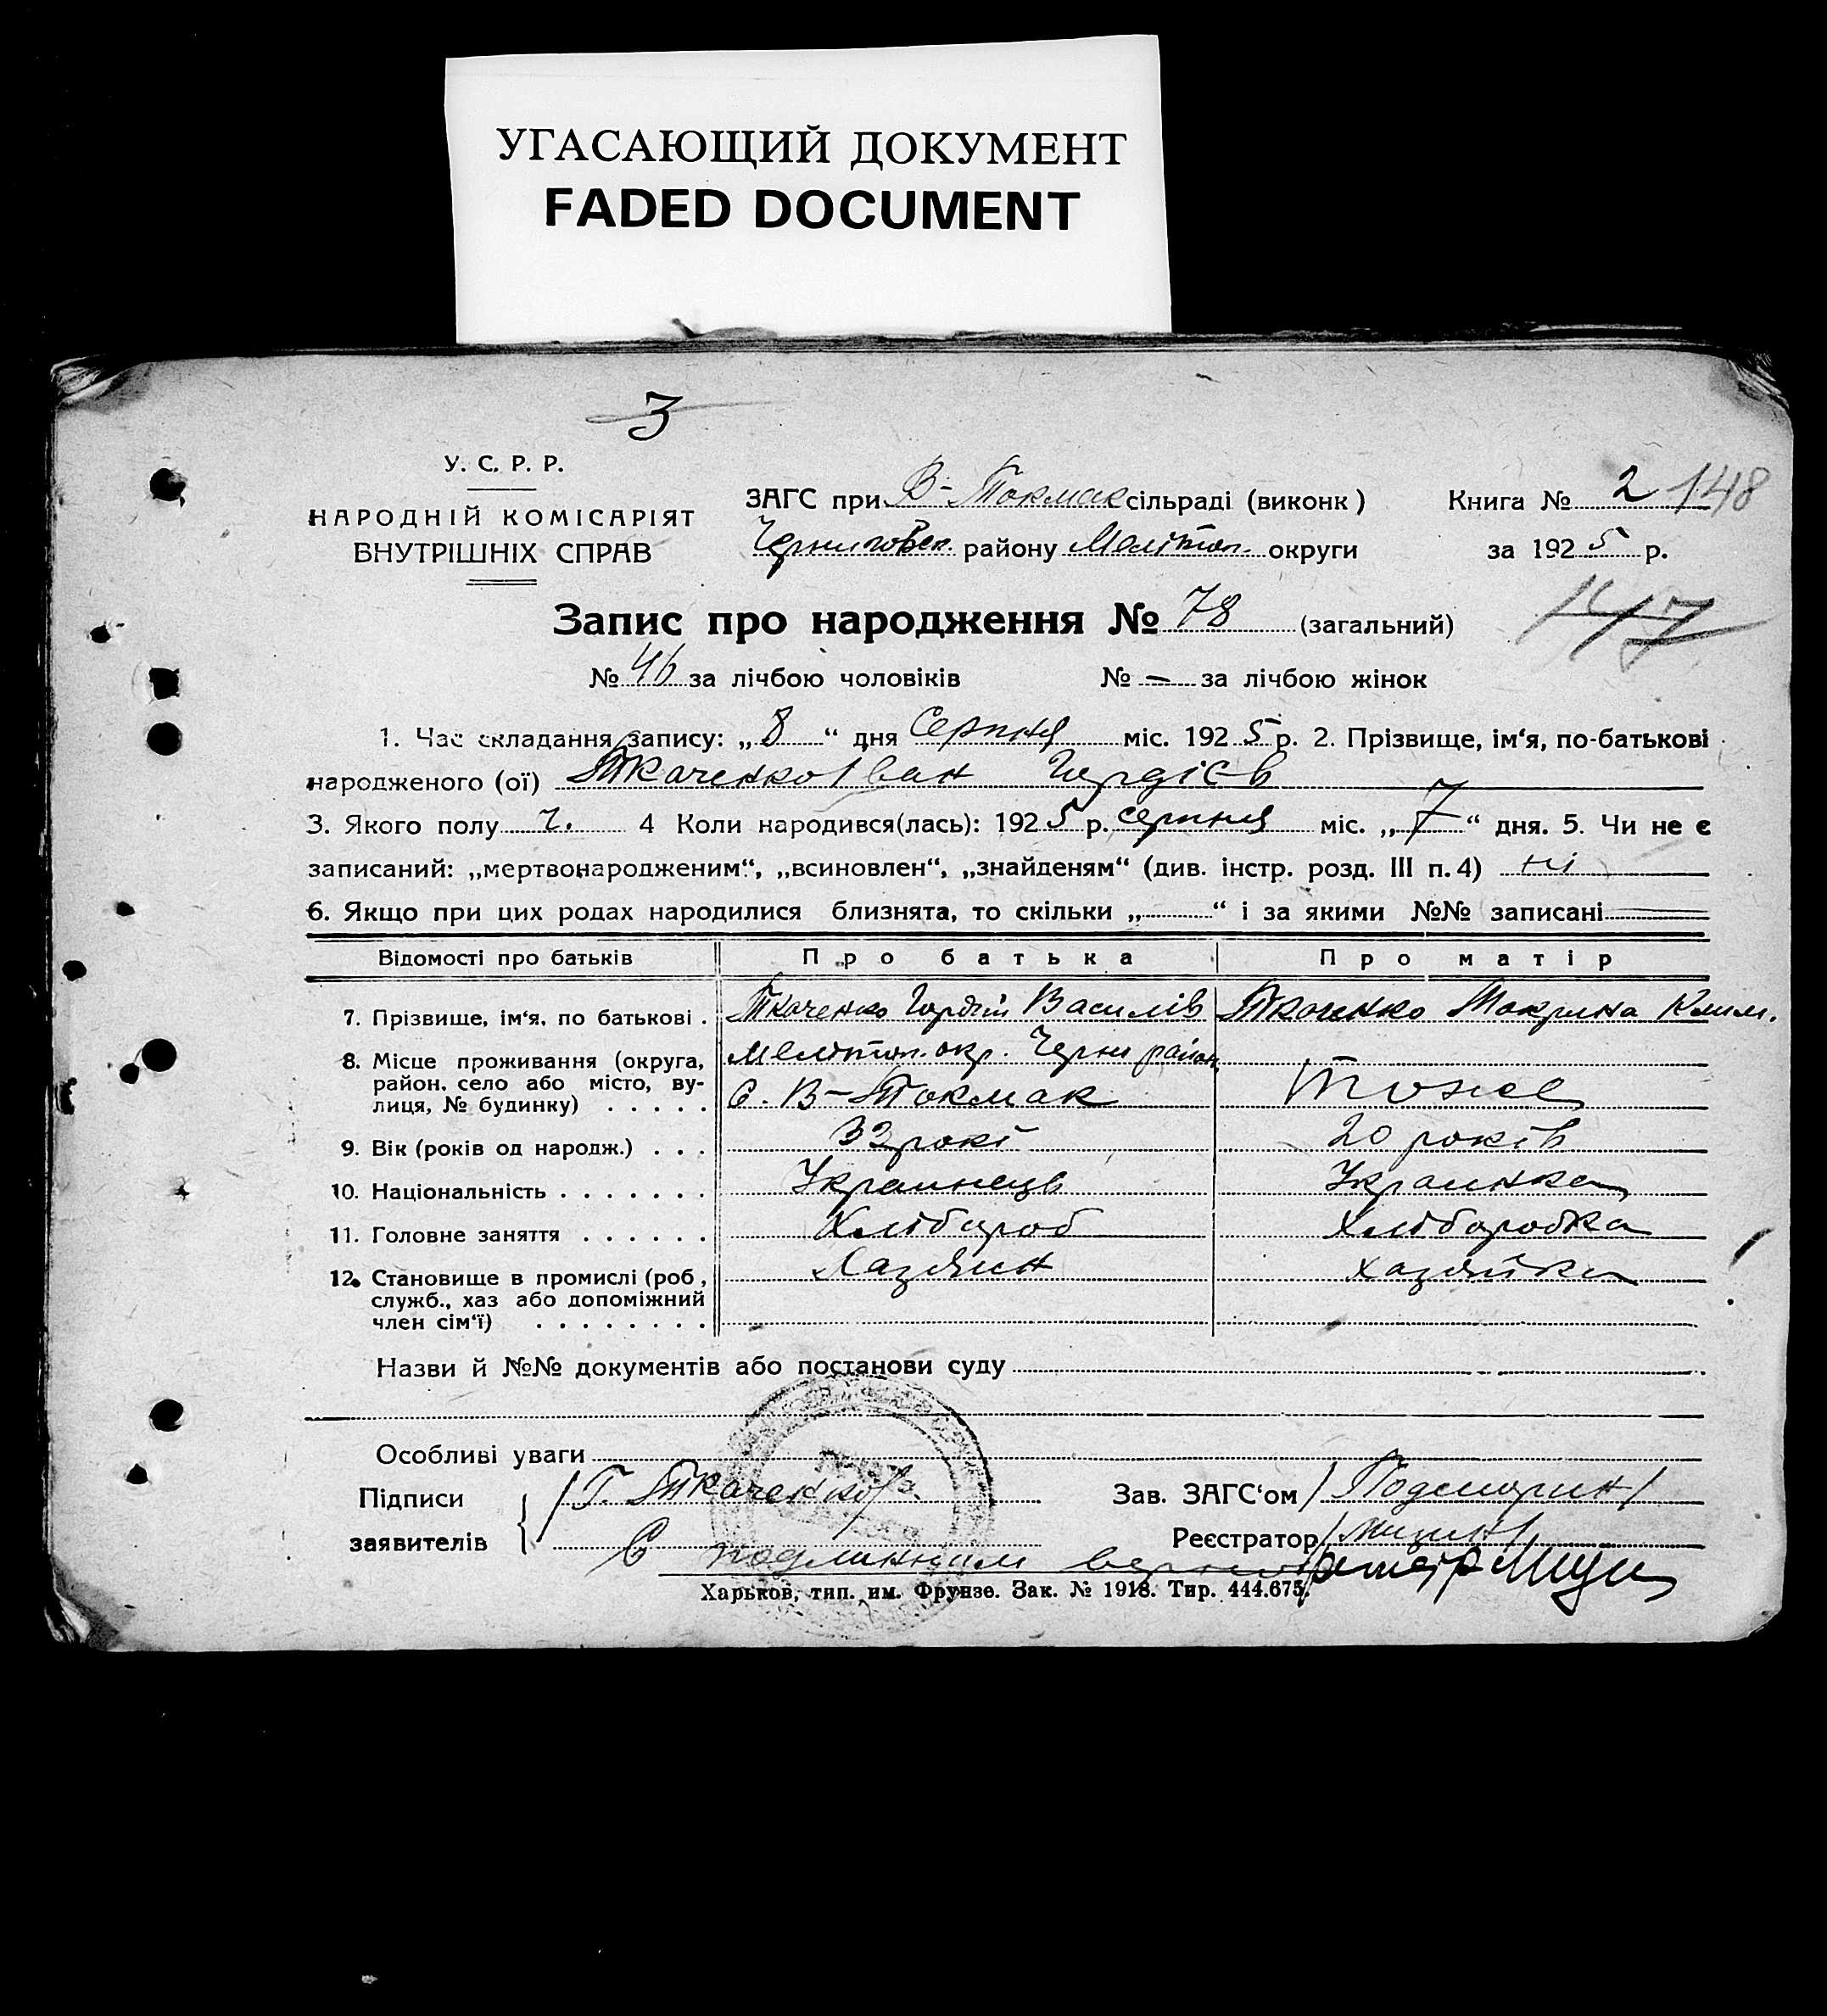 УГАСАЮЩИЙ ДОКУМЕНТ
FADED DOCUMENT
3
У. С. Р. Р.
НАРОДНІЙ КОМІСАРІЯТ
ВНУТРІШНІХ СПРАВ
ЗАГС при В-Токмак сільраді (виконк)
Черниговск. району Мелітоп. округи
Книга № 2 148
за 1925 р.
Запис про народження № 78 (загальний) 147
№ 46 за лічбою чоловіків № — за лічбою жінок
1. Час складання запису: „8“ дня Серпня міс. 1925 р. 2. Прізвище, ім‘я, по-батькові
народженого (ої) Ткаченко Іван Гордієв
3. Якого полу ч. 4 Коли народився(лась): 1925 р. серпня міс. „7“ дня. 5. Чи не є
записаний: „мертвонародженим“, „всиновлен“, „знайденям“ (див. інстр. розд. III п. 4) ні
6. Якщо при цих родах народилися близнята, то скільки „ “ і за якими №№ записані
Відомості про батьків Про батька Про матір
7. Прізвище, ім‘я, по батькові . Ткаченко Гордій Василів Ткаченко Макрина Клим.
8. Місце проживання (округа, район, село або місто, вулиця, № будинку) . . . . . Мелітоп. окр. Черни район
С. В-Токмак тоже
9. Вік (років од народж.) . . . 33 рокі 20 років
10. Національність . . . . . . . Украинець Украинка
11. Головне заняття . . . . . . Хлібороб Хлібороbка
12. Становище в промислі (роб, служб., хаз або допоміжний член сім‘ї) . . . . . . . . Хазяин хазяйка
Назви й №№ документів або постанови суду
Особливі уваги
Підписи
заявителів
/Г. Ткаченко/
Зав. ЗАГС‘ом /Подсморин/
Реєстратор
С подлинним верно
Харьков, тип. им. Фрунзе. Зак. № 1918. Тир. 444.675.